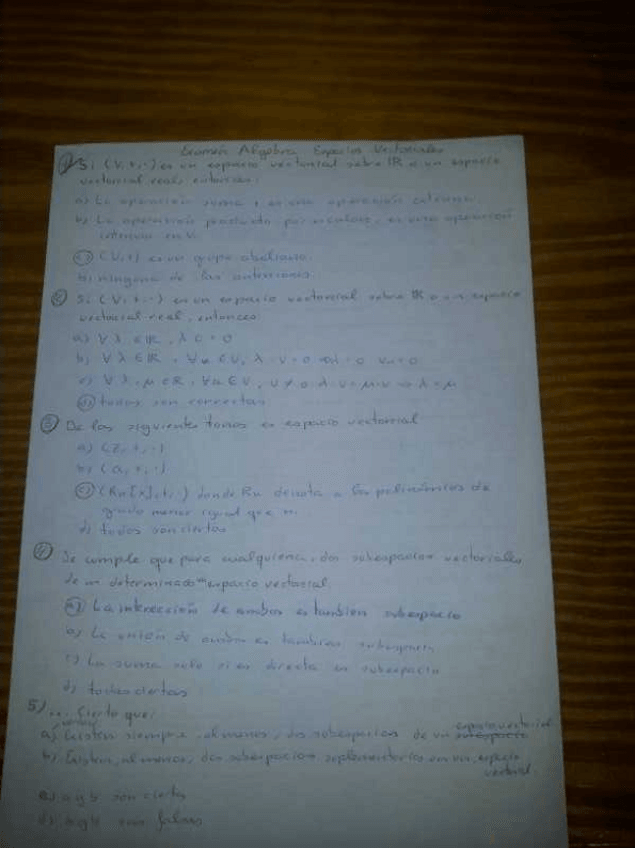 Examen Algebra Espacios Vectoriales
① Si (V,+,·) es un espacio vectorial sobre IR o un espacio
vectorial real, entonces:
a) La operación suma + es una operación externa.
b) La operación producto por escalares, es una operación
interna en V.
c) (V,+) es un grupo abeliano.
ninguna de las anteriores.
② Si (V,+,·) es un espacio vectorial sobre IR o un espacio
vectorial real, entonces
a) ∀ λ ∈ IR, λ 0 = 0
b) ∀ λ ∈ IR, ∀ u ∈ V, λ · v = 0
c) ∀ λ, μ ∈ R, ∀ u ∈ V, v ≠ 0 λ·v = μ·v ⇒ λ = μ
d) todas son correctas
③ De las siguientes es espacio vectorial
a) (Z,+,·)
b) (Q,+,·)
c) (Rn[x],+,·) donde Rn denota a los polinómios de
grado menor igual que n.
d) todos son ciertos
④ Se cumple que para cualquiera, dos subespacios vectoriales
de un determinado espacio vectorial.
a) La intersección de ambos es tambien subespacio
La unión de ambos es tambien subespacio
c) La suma solo si es directa es subespacio
d) todas ciertas
5) ... Cierto que:
a) Existen siempre, al menos, dos subespacios de un espacio vectorial
b) Existen, al menos, dos subespacios suplementarios en un espacio
vectorial
c) a y b son cierta
d) a y b son falsas